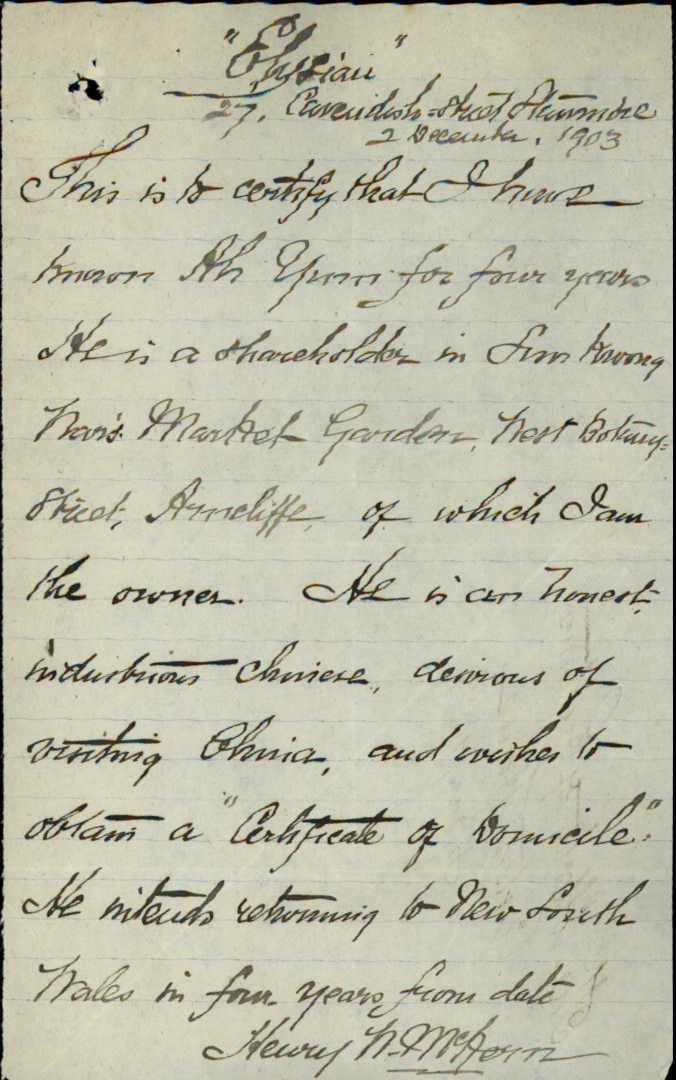 "Elysian"
27, Cavendish-Street Stanmore
2 December, 1903
This is to certify that I have
known Ah Yum for four years
He is a shareholder in Sun Kwong
War's Market Garden, West Botany-
Street, Arncliffe, of which I am
the owner. He is an honest,
industrious Chinese, desirous of
visiting China, and wishes to
obtain a "Certificate of Domicile".
He intends returning to New South
Wales in four years from date
Henry